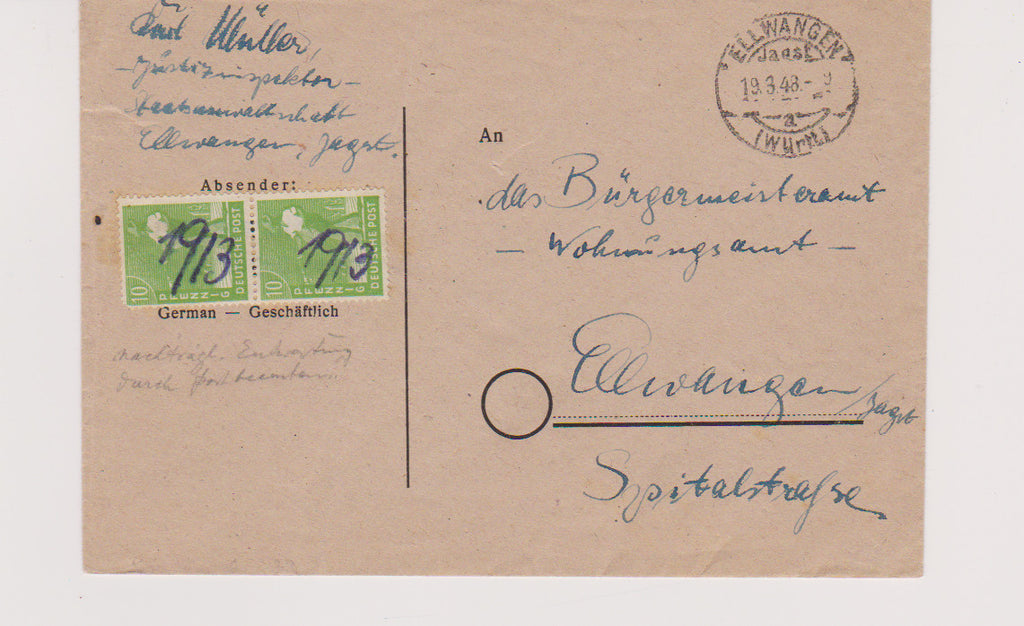 Karl Müller,
- Justizinspektor -
Staatsanwaltschaft
Ellwangen, Jagst.
Absender:
19/3 19/3
10 PFENNIG DEUTSCHE POST
10 PFENNIG DEUTSCHE POST
German — Geschäftlich
nachträgl. Entwertung
durch Postbeamten.
ELLWANGEN
Jagst
19.3.48.-9
a
(Württ)
An
das Bürgermeisteramt
- Wohnungsamt -
Ellwangen/Jagst
Spitalstraße